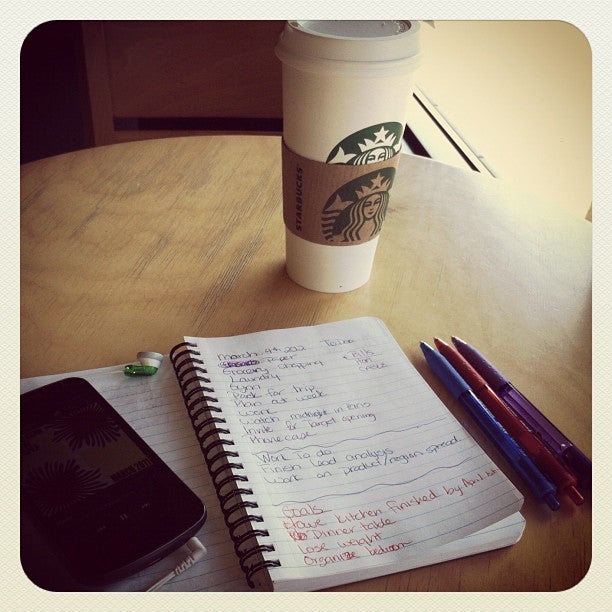 STARBUCKS
March 4th 2012 To Do
paper
Grocery shopping
Laundry
Gym
Pack for trip
Plan out week
Work
Watch midnight in Paris
Invite for target opening
Phone case
Bills
Work To do
Finish load analysis
Work on product/region spread
Goals
Have kitchen finished by April 1st
Dinner table
Lose weight
Organize bedroom